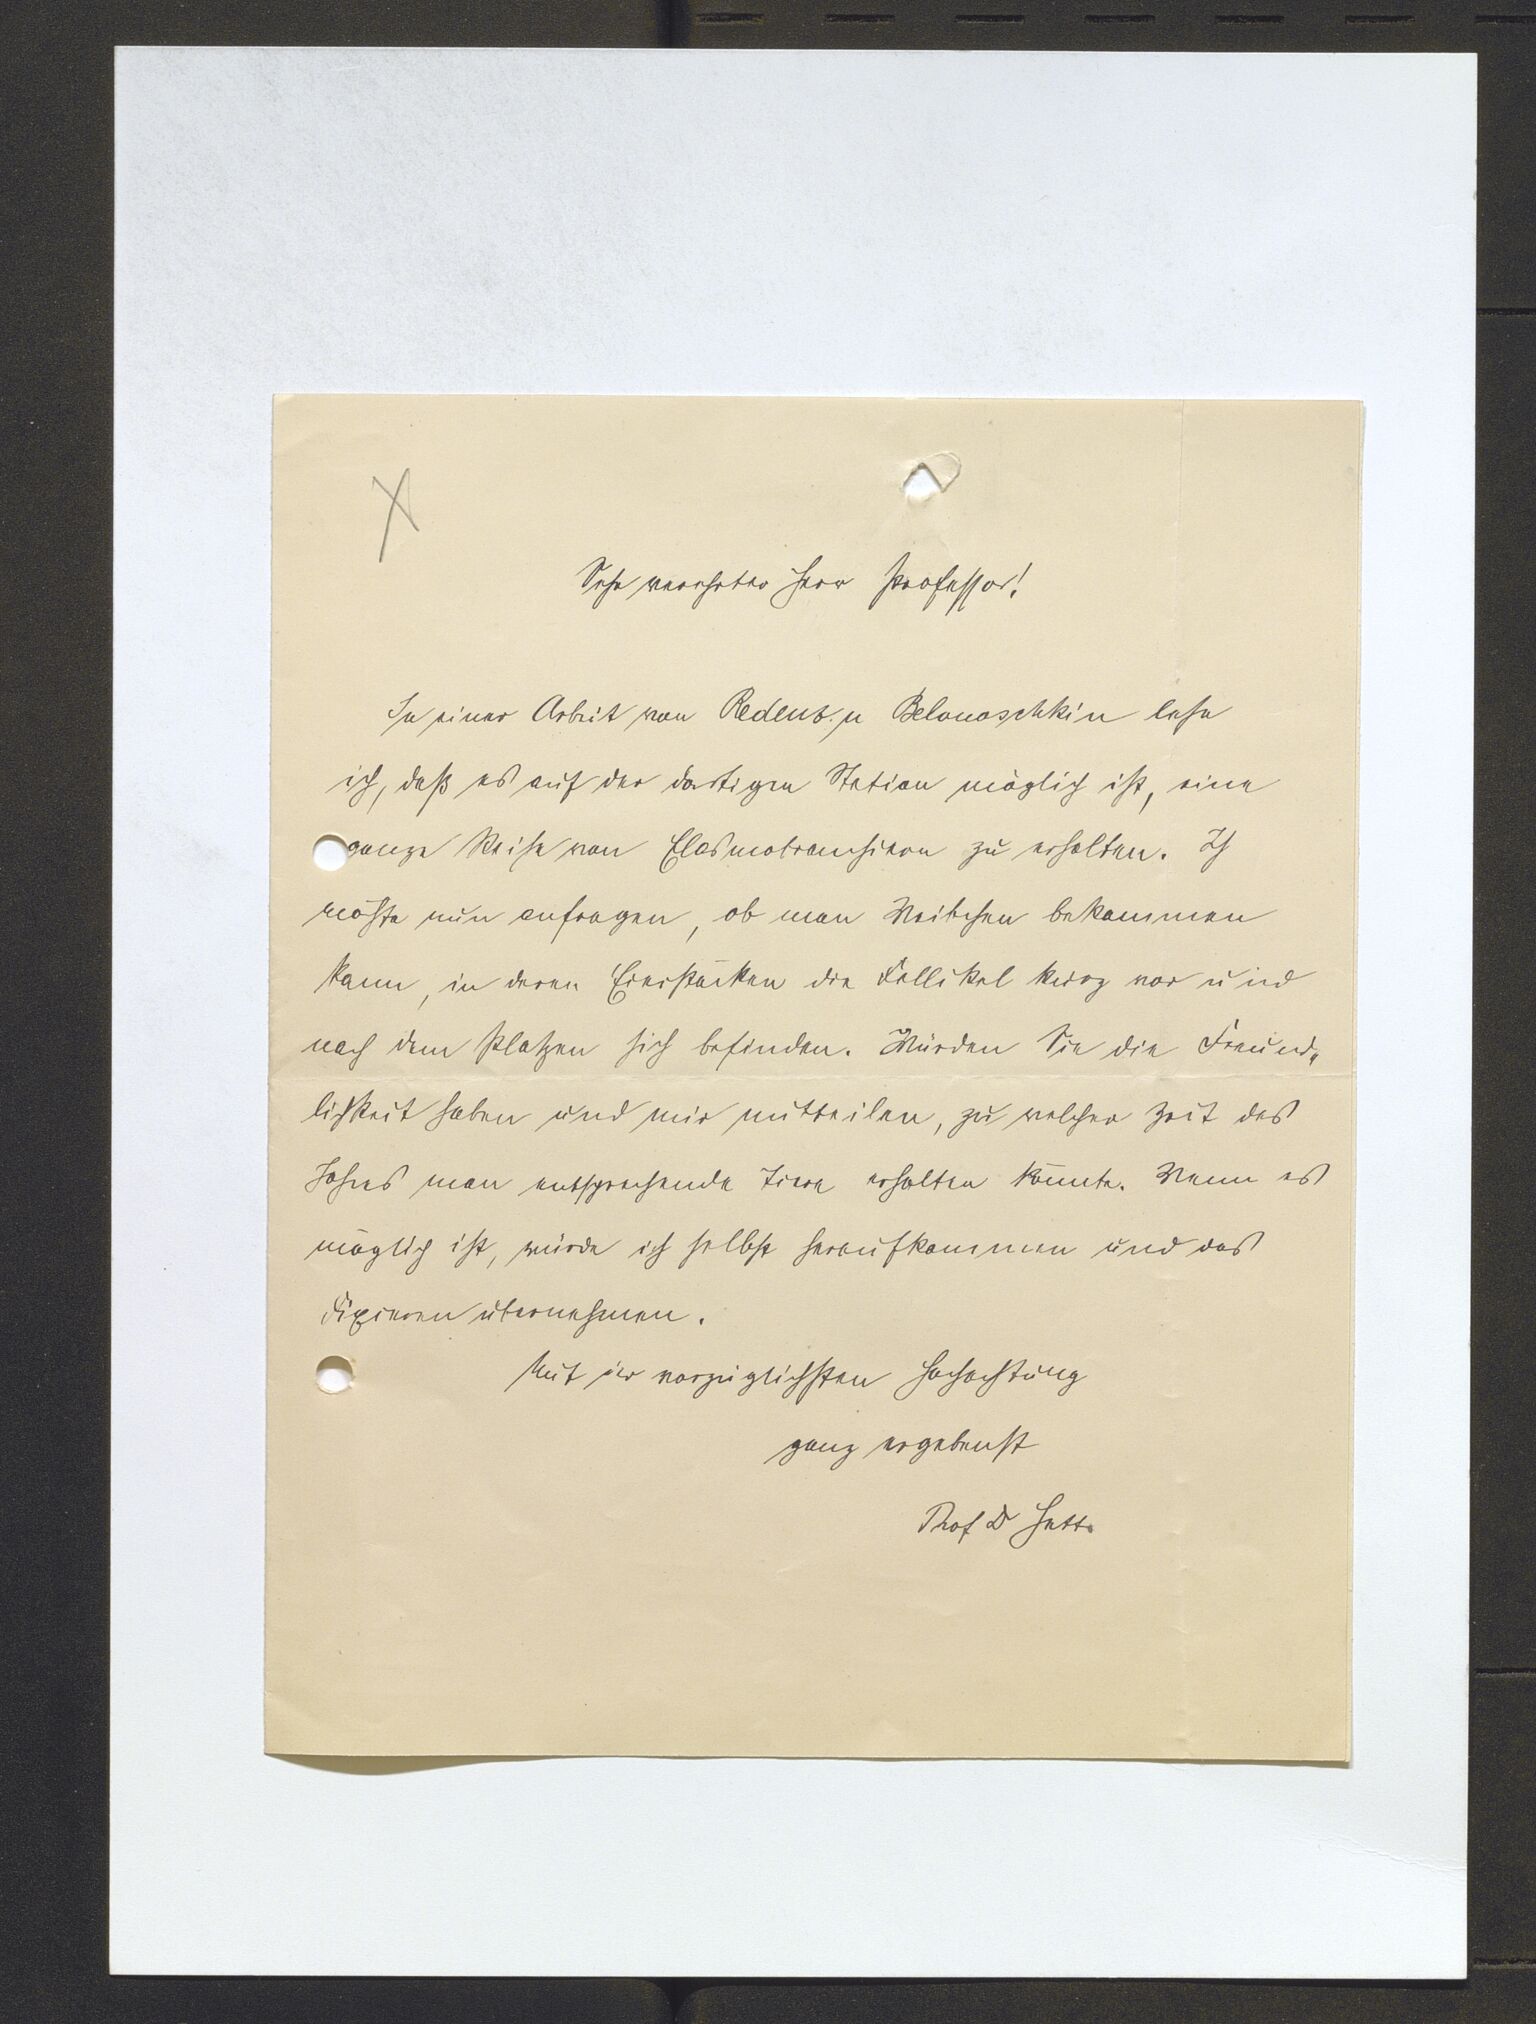 Sehr verehrter Herr Professor!
In einer Arbeit von Redenz u Belonoschkin lese
ich, daß es auf der dortigen Station möglich ist, eine
ganze Reihe von Elasmobranchiern zu erhalten. Ich
möchte nun anfragen, ob man Weibchen bekommen
kann, in deren Eierstöcken die Follikel kurz vor und
nach dem Platzen sich befinden. Würden Sie die Freund-
lichkeit haben und mir mitteilen, zu welcher Zeit des
Jahres man entsprechende Tiere erhalten könnte. Wenn es
möglich ist, würde ich selbst heraufkommen und das
Fixieren übernehmen.
Mit der vorzüglichsten Hochachtung
ganz ergebenst
Prof D